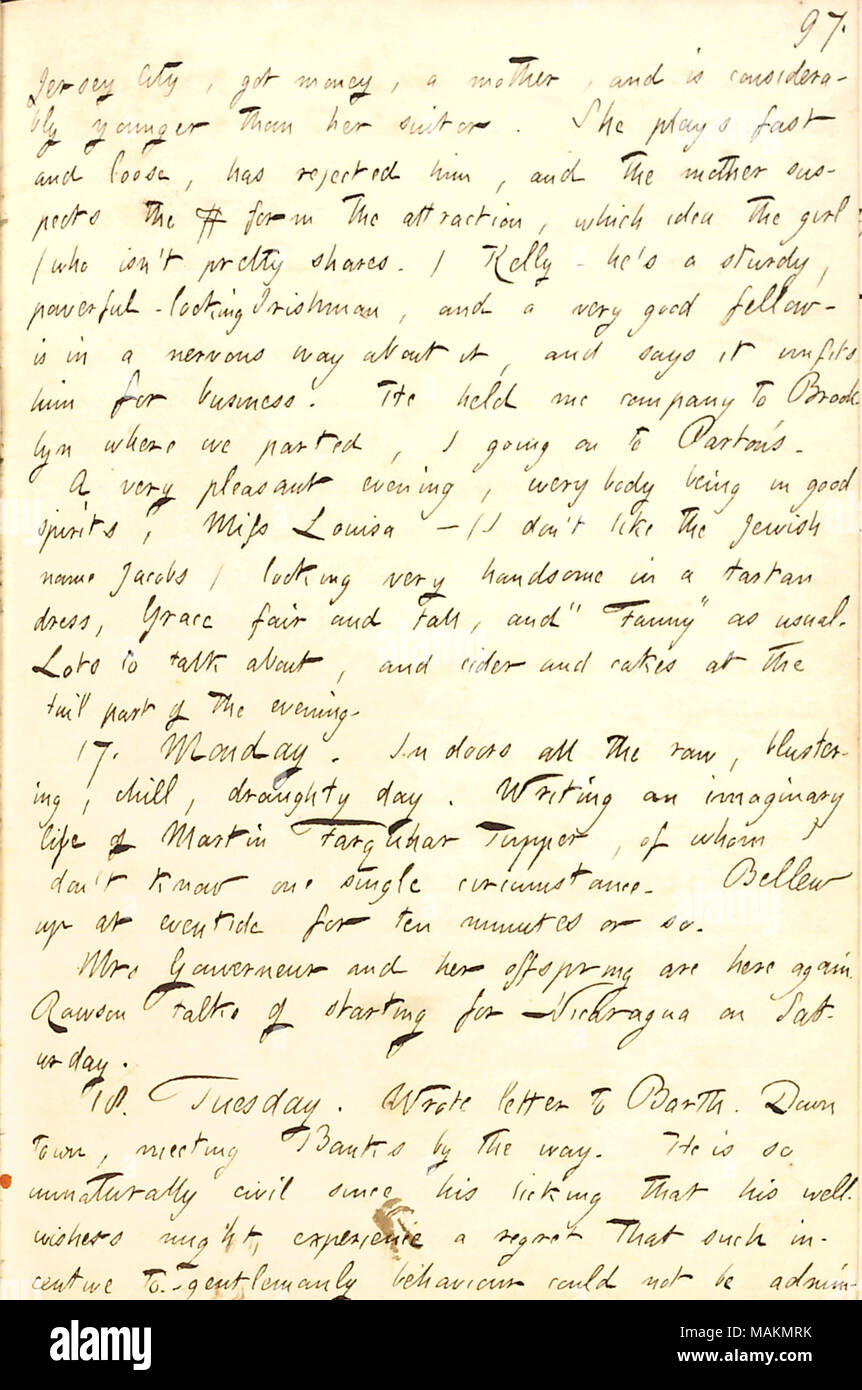 97.
Jersey City, got money, a mother, and is considera-
bly younger than her suitor. She plays fast
and loose, has rejected him, and the mother sus-
pects the $ form the attraction, which idea the girl
(who isn't pretty shares.) Kelly - he's a sturdy,
powerful-looking Irishman, and a very good fellow -
is in a nervous way about it, and says it unfits
him for business. He held me company to Brook
lyn where we parted, I going on to Parton's.
A very pleasant evening, everybody being in good
spirits, Miss Louisa - (I don't like the Jewish
name Jacobs) looking very handsome in a tartan
dress, Grace fair and tall, and "Fanny" as usual.
Lots to talk about, and cider and cakes at the
tail part of the evening.
17. Monday. In doors all the raw, bluster-
ing, chill, draughty day. Writing an imaginary
life of Martin Farquhar Tupper, of whom I
don't know one single circumstance. Bellew
up at eventide for ten minutes or so.
Mrs Gouverneur and her offspring are here again.
Rawson talks of starting for Nicaragua on Sat-
urday.
18. Tuesday. Wrote letter to Barth. Down
town, meeting Banks by the way. He is so
unnaturally civil since his licking that his well-
wishers might experience a regret that such in-
centive to gentlemanly behaviour could not be admin-
alamy
Image ID: MAKMRK
www.alamy.com